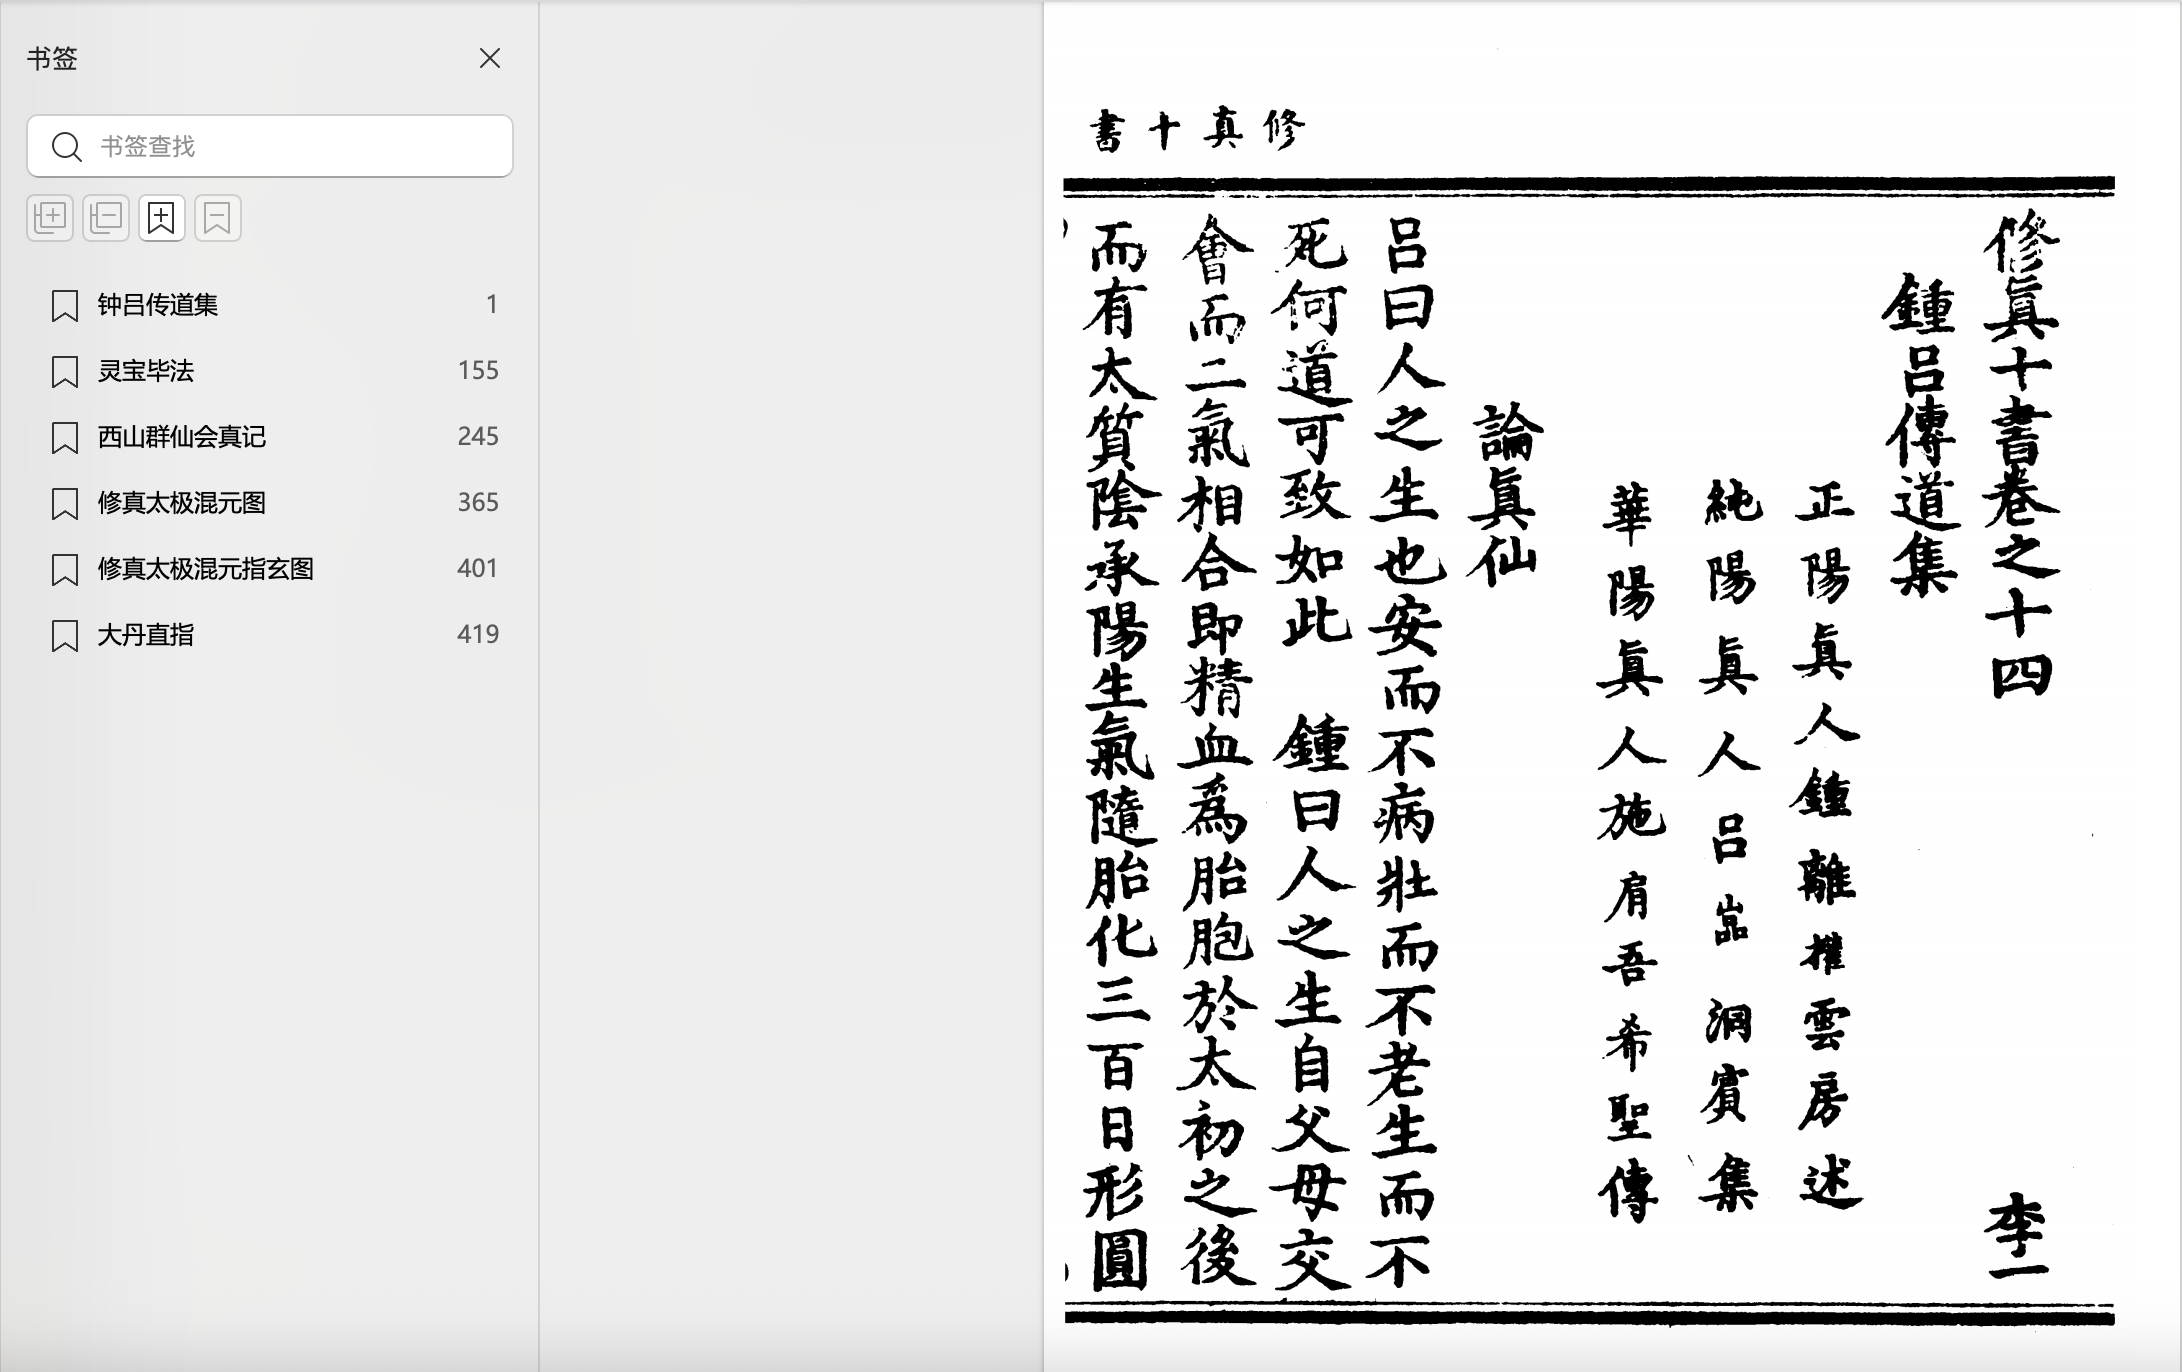 书签
书签查找
钟吕传道集 1
灵宝毕法 155
西山群仙会真记 245
修真太极混元图 365
修真太极混元指玄图 401
大丹直指 419
修真十書
修眞十書卷之十四 李一
鍾呂傳道集
正陽眞人鍾離權雲房述
純陽眞人呂嵓洞賓集
華陽眞人施肩吾希聖傳
論眞仙
呂曰人之生也安而不病壯而不老生而不
死何道可致如此 鍾曰人之生自父母交
會而二氣相合即精血爲胎胞於太初之後
而有太質陰承陽生氣隨胎化三百日形圓